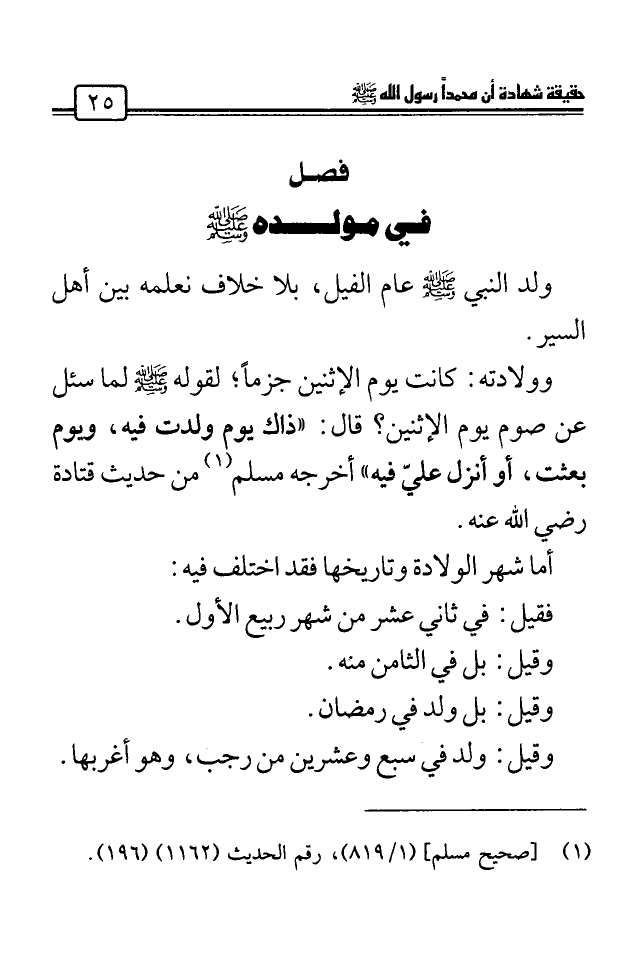 حقيقة شهادة أن محمداً رسول الله ﷺ
٢٥
فصل
في مولــــده ﷺ
ولد النبي ﷺ عام الفيل، بلا خلاف نعلمه بين أهل
السير.
وولادته: كانت يوم الإثنين جزماً؛ لقوله ﷺ لما سئل
عن صوم يوم الإثنين؟ قال: «ذاك يوم ولدت فيه، ويوم
بعثت، أو أنزل عليّ فيه» أخرجه مسلم(١) من حديث قتادة
رضي الله عنه.
أما شهر الولادة وتاريخها فقد اختلف فيه:
فقيل: في ثاني عشر من شهر ربيع الأول.
وقيل: بل في الثامن منه.
وقيل: بل ولد في رمضان.
وقيل: ولد في سبع وعشرين من رجب، وهو أغربها.
(١) [صحيح مسلم] (٨١٩/١)، رقم الحديث (١١٦٢) (١٩٦).